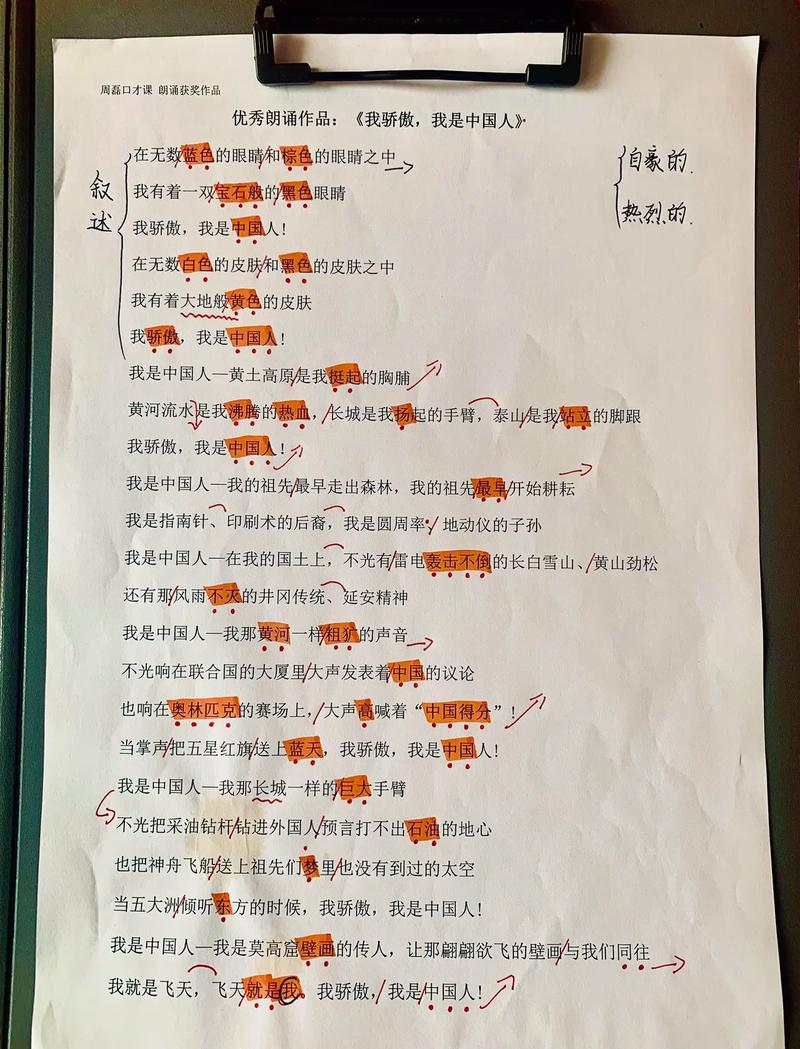 周磊口才课 朗诵获奖作品
优秀朗诵作品：《我骄傲，我是中国人》
在无数蓝色的眼睛和棕色的眼睛之中
自豪的.
叙述
我有着一双宝石般的黑色眼睛
热烈的.
我骄傲，我是中国人！
在无数白色的皮肤和黑色的皮肤之中
我有着大地般黄色的皮肤
我骄傲，我是中国人！
我是中国人—黄土高原是我挺起的胸脯
黄河流水是我沸腾的热血，长城是我扬起的手臂，泰山是我站立的脚跟
我骄傲，我是中国人！
我是中国人—我的祖先最早走出森林，我的祖先最早开始耕耘
我是指南针、印刷术的后裔，我是圆周率、地动仪的子孙
我是中国人—在我的国土上，不光有雷电轰击不倒的长白雪山、黄山劲松
还有那风雨不灭的井冈传统、延安精神
我是中国人—我那黄河一样粗犷的声音
不光响在联合国的大厦里大声发表着中国的议论
也响在奥林匹克的赛场上，大声高喊着“中国得分”！
当掌声把五星红旗送上蓝天，我骄傲，我是中国人！
我是中国人—我那长城一样的巨大手臂
不光把采油钻杆钻进外国人预言打不出石油的地心
也把神舟飞船送上祖先们梦里也没有到过的太空
当五大洲倾听东方的时候，我骄傲，我是中国人！
我是中国人—我是莫高窟壁画的传人，让那翩翩欲飞的壁画与我们同往
我就是飞天，飞天就是我。我骄傲，我是中国人！